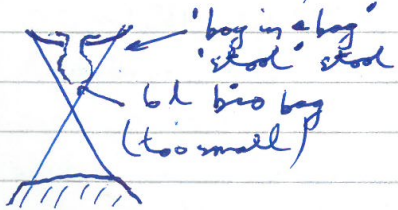 'bag in a bag'
'stool' stool
6l bio bag
(too small)